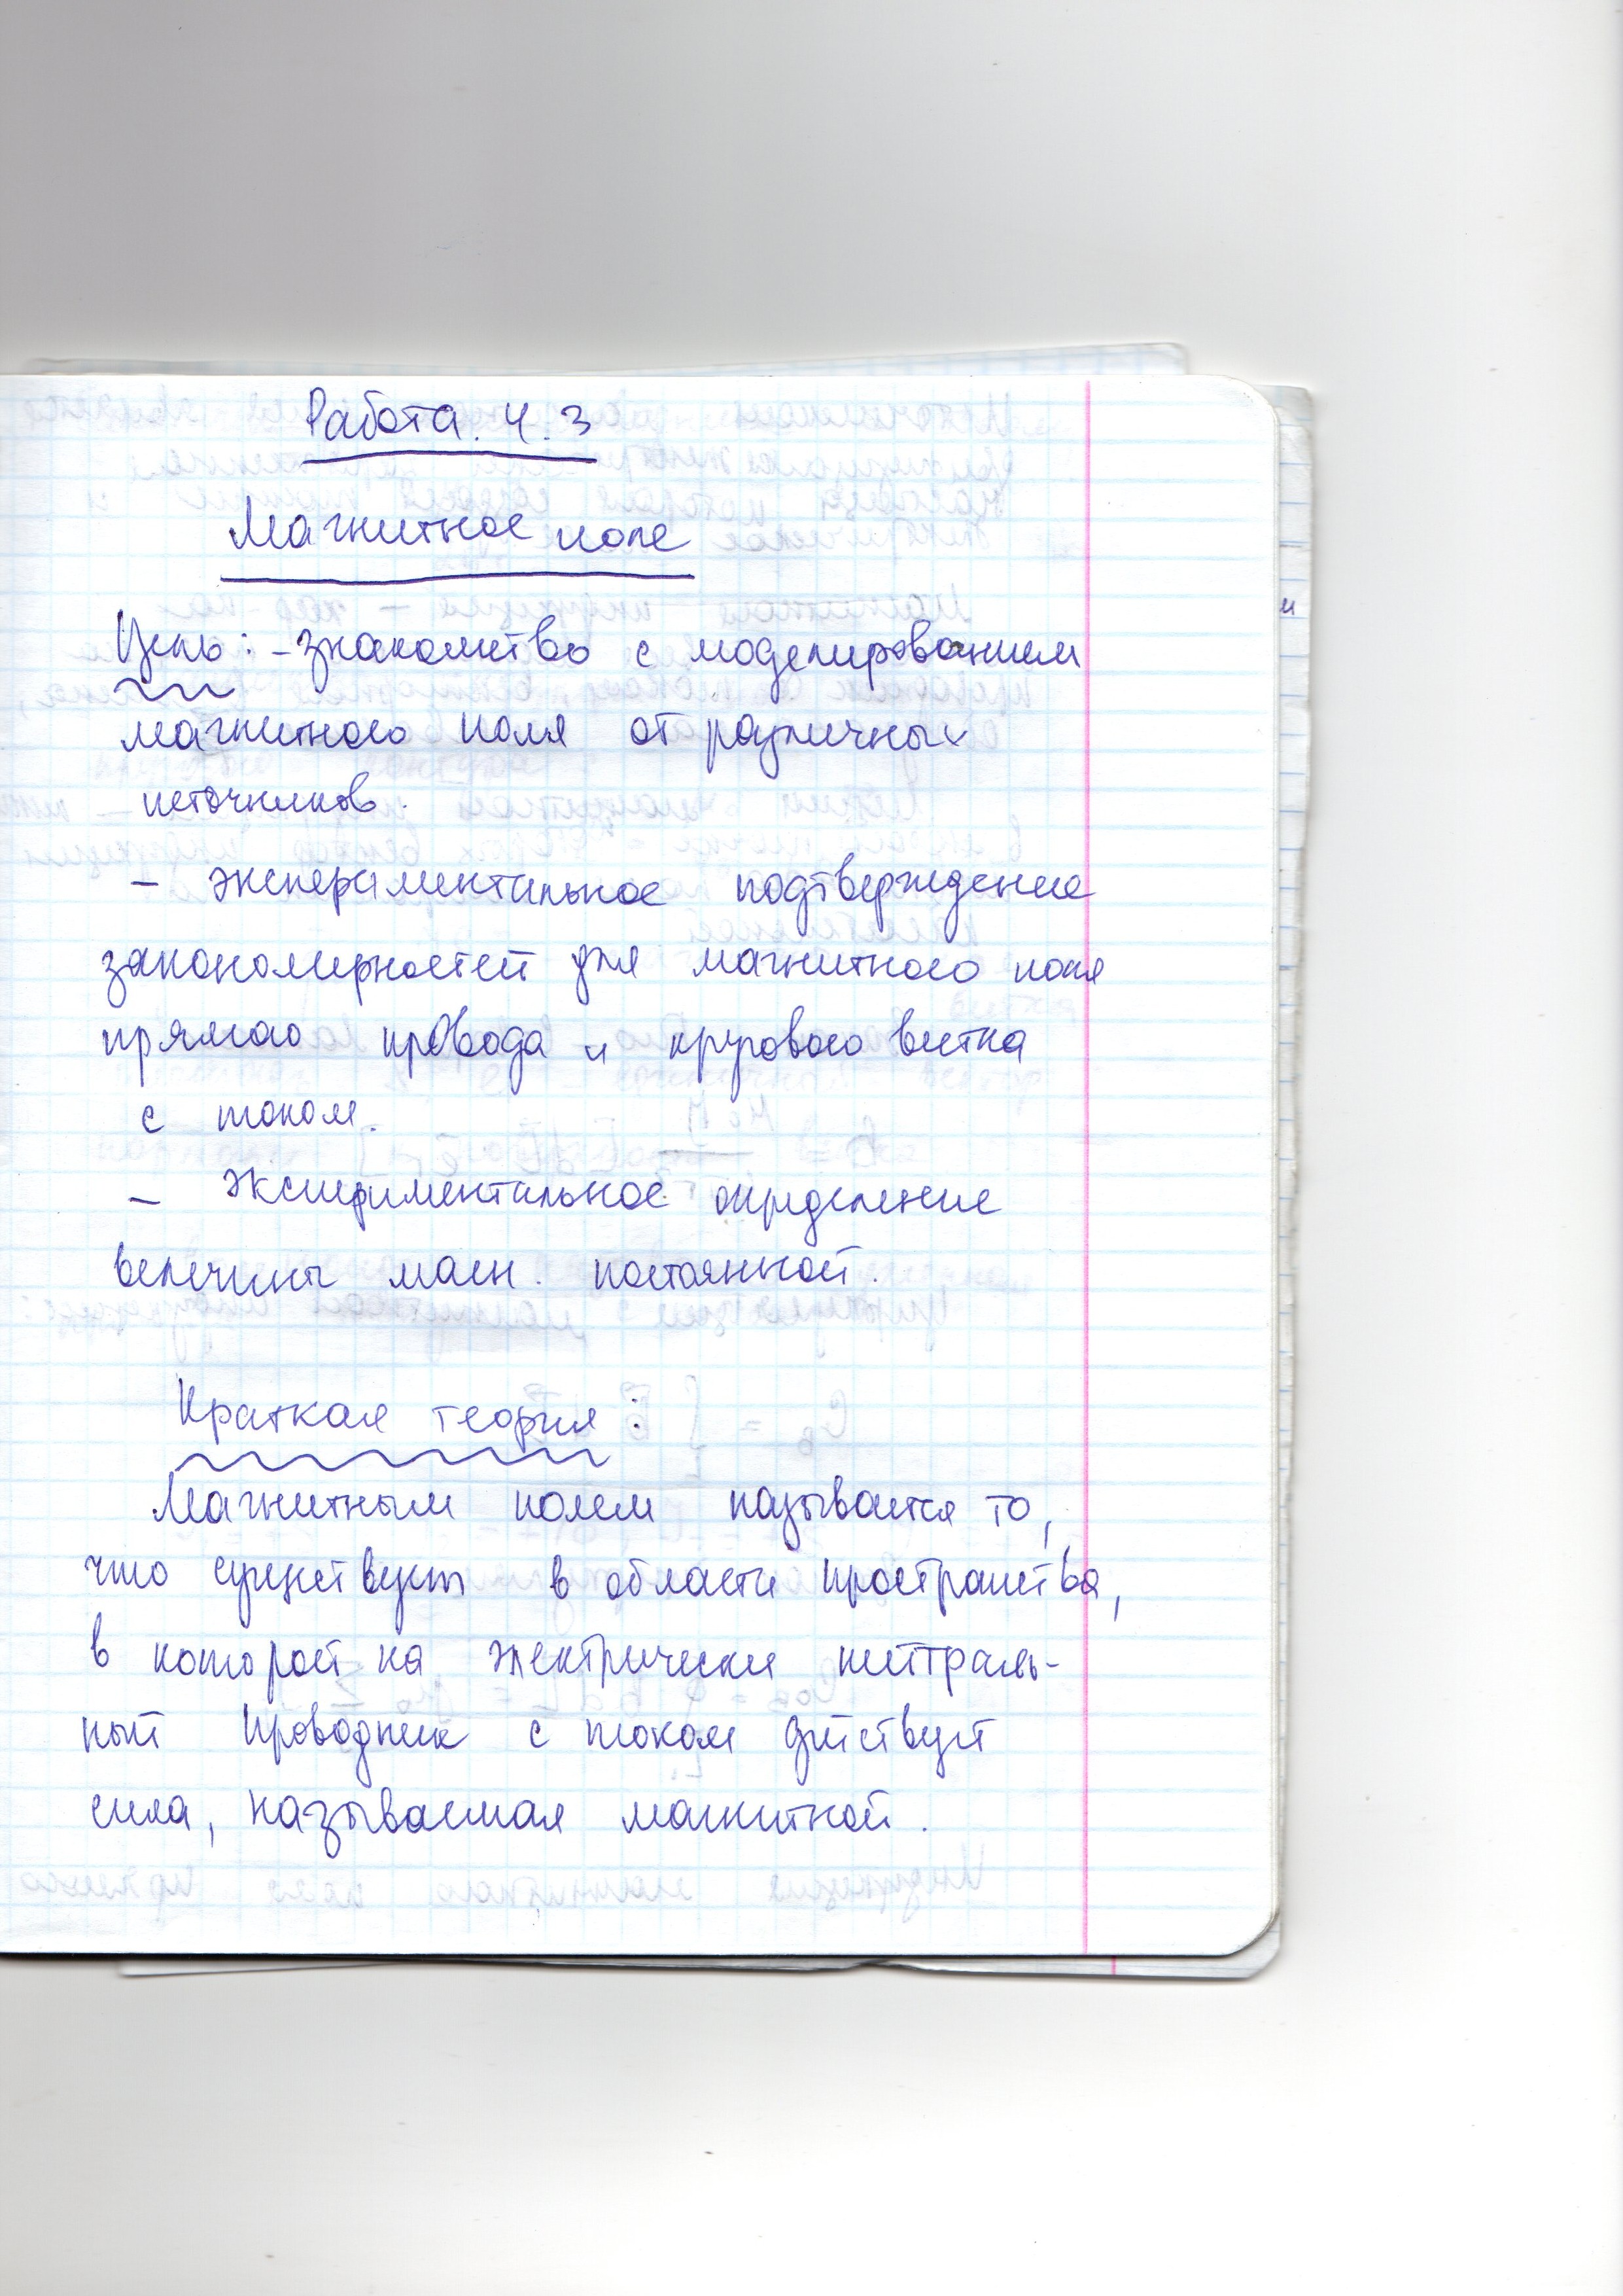 Работа. 4.3
Магнитное поле
Цель: - знакомство с моделированием
магнитного поля от различных
источников.
- экспериментальное подтверждение
закономерностей для магнитного поля
прямого провода и кругового витка
с током.
- экспериментальное определение
величины магн. постоянной.
Краткая теория:
Магнитным полем называется то,
что существует в области пространства,
в которой на электрически нейтраль-
ный проводник с током действует
сила, называемая магнитной.